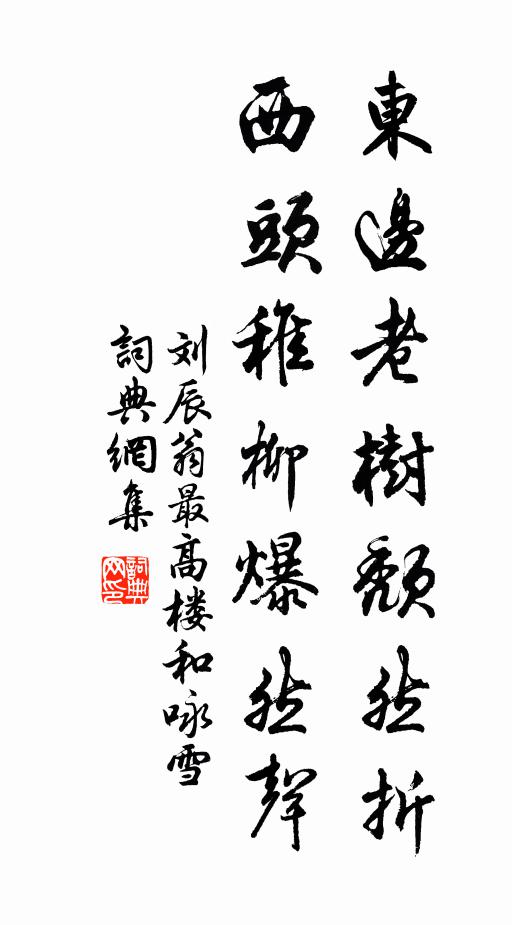 東邊老樹頹然折
西頭稚柳爆然聲
刘辰翁最高楼和咏雪
詞典網集
詞典网印